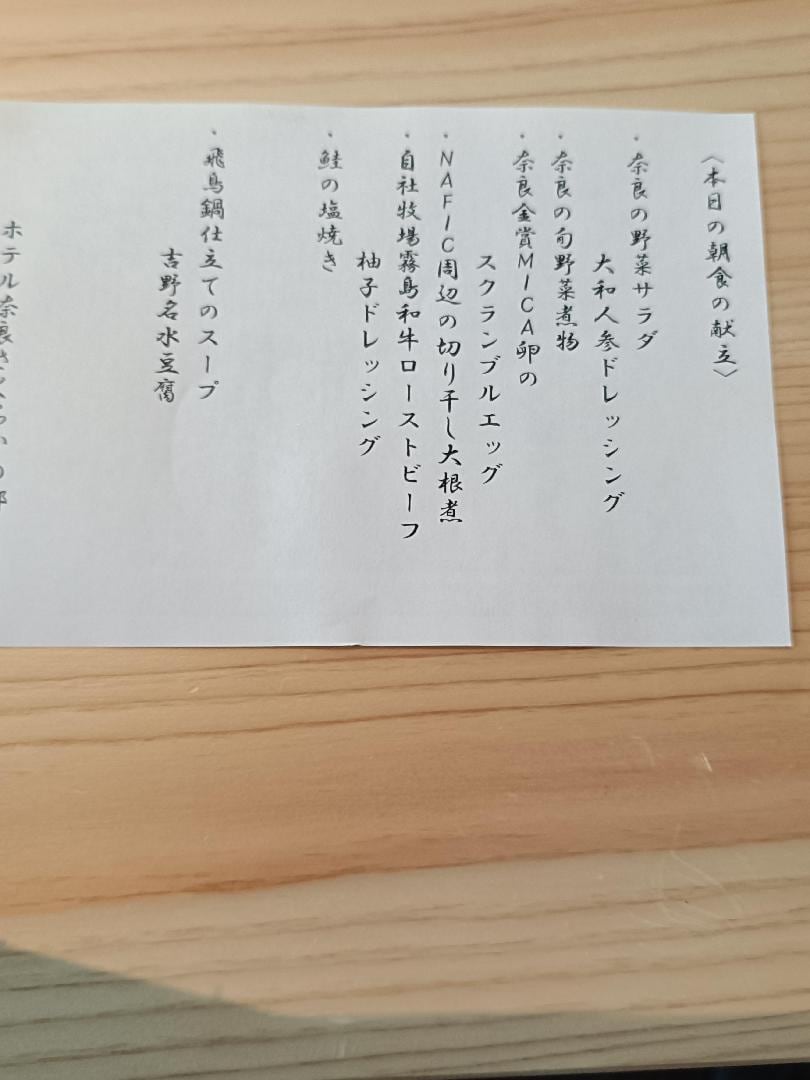 〈本日の朝食の献立〉
・奈良の野菜サラダ
大和人参ドレッシング
・奈良の旬野菜煮物
・奈良金賞MICA卵の
スクランブルエッグ
・NAFIC周辺の切り干し大根煮
・自社牧場霧島和牛ローストビーフ
柚子ドレッシング
・鮭の塩焼き
・飛鳥鍋仕立てのスープ
吉野名水豆腐
ホテル奈良さくらいの郷